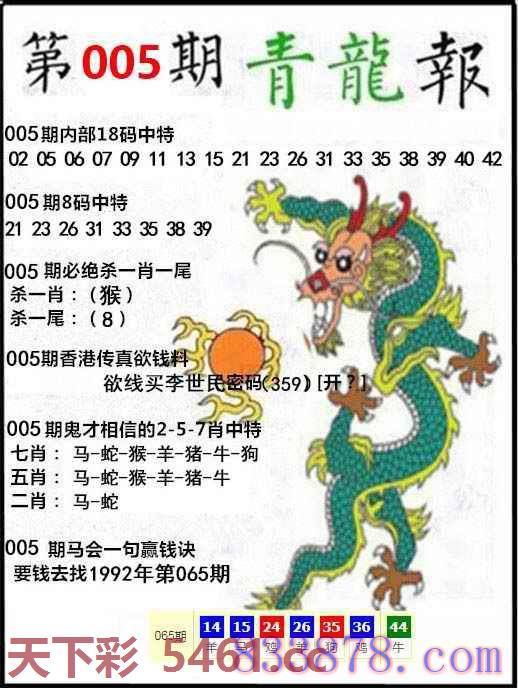 第005期青龍報
005期内部18码中特
02 05 06 07 09 11 13 15 21 23 26 31 33 35 38 39 40 42
005期8码中特
21 23 26 31 33 35 38 39
005期必绝杀一肖一尾
杀一肖：(猴)
杀一尾：(8)
005期香港传真欲钱料
欲线买李世民密码(359)[开？]
005期鬼才相信的2-5-7肖中特
七肖： 马-蛇-猴-羊-猪-牛-狗
五肖： 马-蛇-猴-羊-猪-牛
二肖： 马-蛇
005 期马会一句赢钱诀
要钱去找1992年第065期
065期 14 15 24 26 35 36 44
羊 马 鸡 羊 狗 鸡 牛
天下彩 5461.cc
838878.com